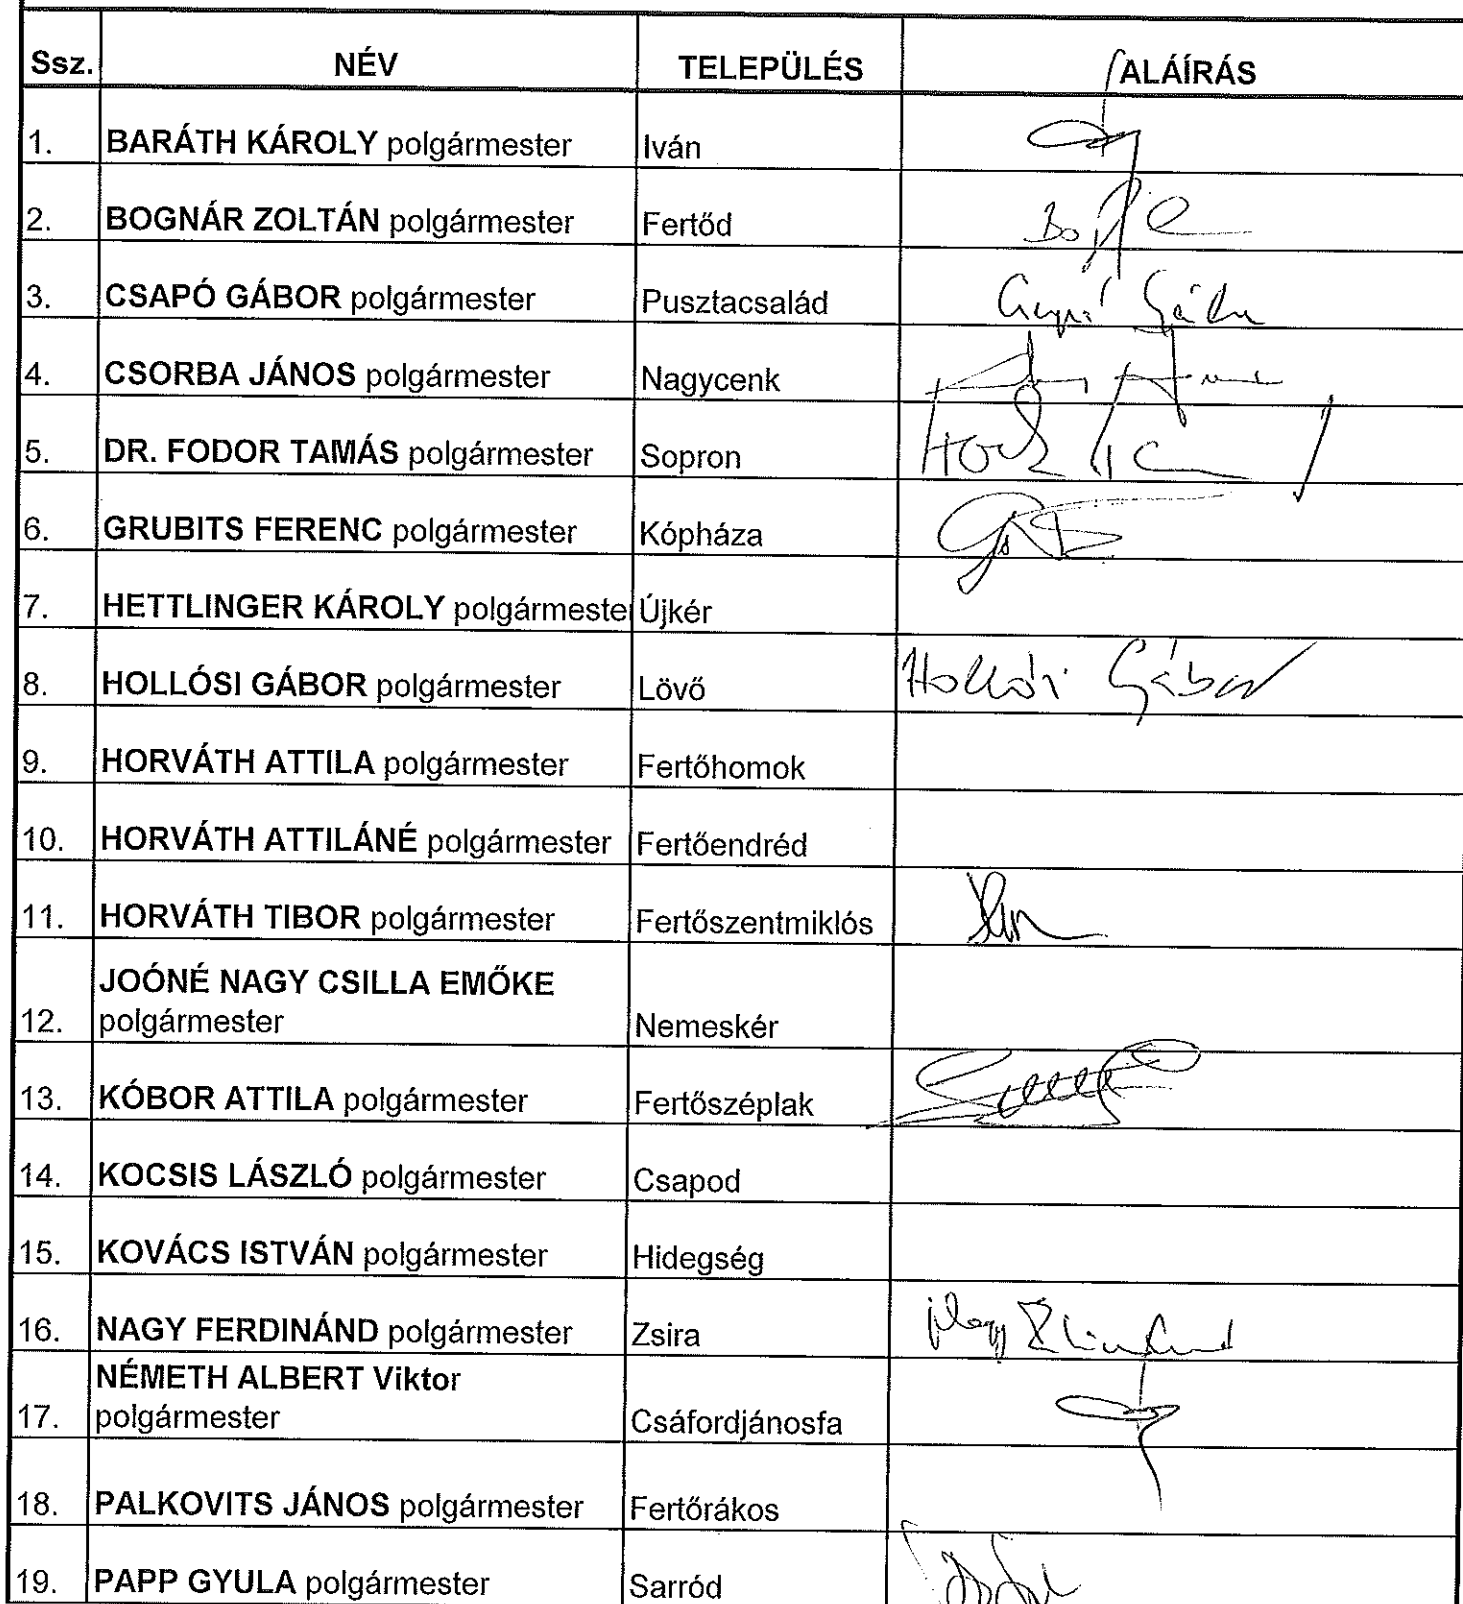 Ssz. NÉV TELEPÜLÉS ALÁÍRÁS
1. BARÁTH KÁROLY polgármester Iván
2. BOGNÁR ZOLTÁN polgármester Fertőd
3. CSAPÓ GÁBOR polgármester Pusztacsalád Csapó Gábor
4. CSORBA JÁNOS polgármester Nagycenk
5. DR. FODOR TAMÁS polgármester Sopron
6. GRUBITS FERENC polgármester Kópháza
7. HETTLINGER KÁROLY polgármeste Újkér
8. HOLLÓSI GÁBOR polgármester Lövő Hollósi Gábor
9. HORVÁTH ATTILA polgármester Fertőhomok
10. HORVÁTH ATTILÁNÉ polgármester Fertőendréd
11. HORVÁTH TIBOR polgármester Fertőszentmiklós
JOÓNÉ NAGY CSILLA EMŐKE
12. polgármester Nemeskér
13. KÓBOR ATTILA polgármester Fertőszéplak
14. KOCSIS LÁSZLÓ polgármester Csapod
15. KOVÁCS ISTVÁN polgármester Hidegség
16. NAGY FERDINÁND polgármester Zsira Nagy Ferdinánd
NÉMETH ALBERT Viktor
17. polgármester Csáfordjánosfa
18. PALKOVITS JÁNOS polgármester Fertőrákos
19. PAPP GYULA polgármester Sarród